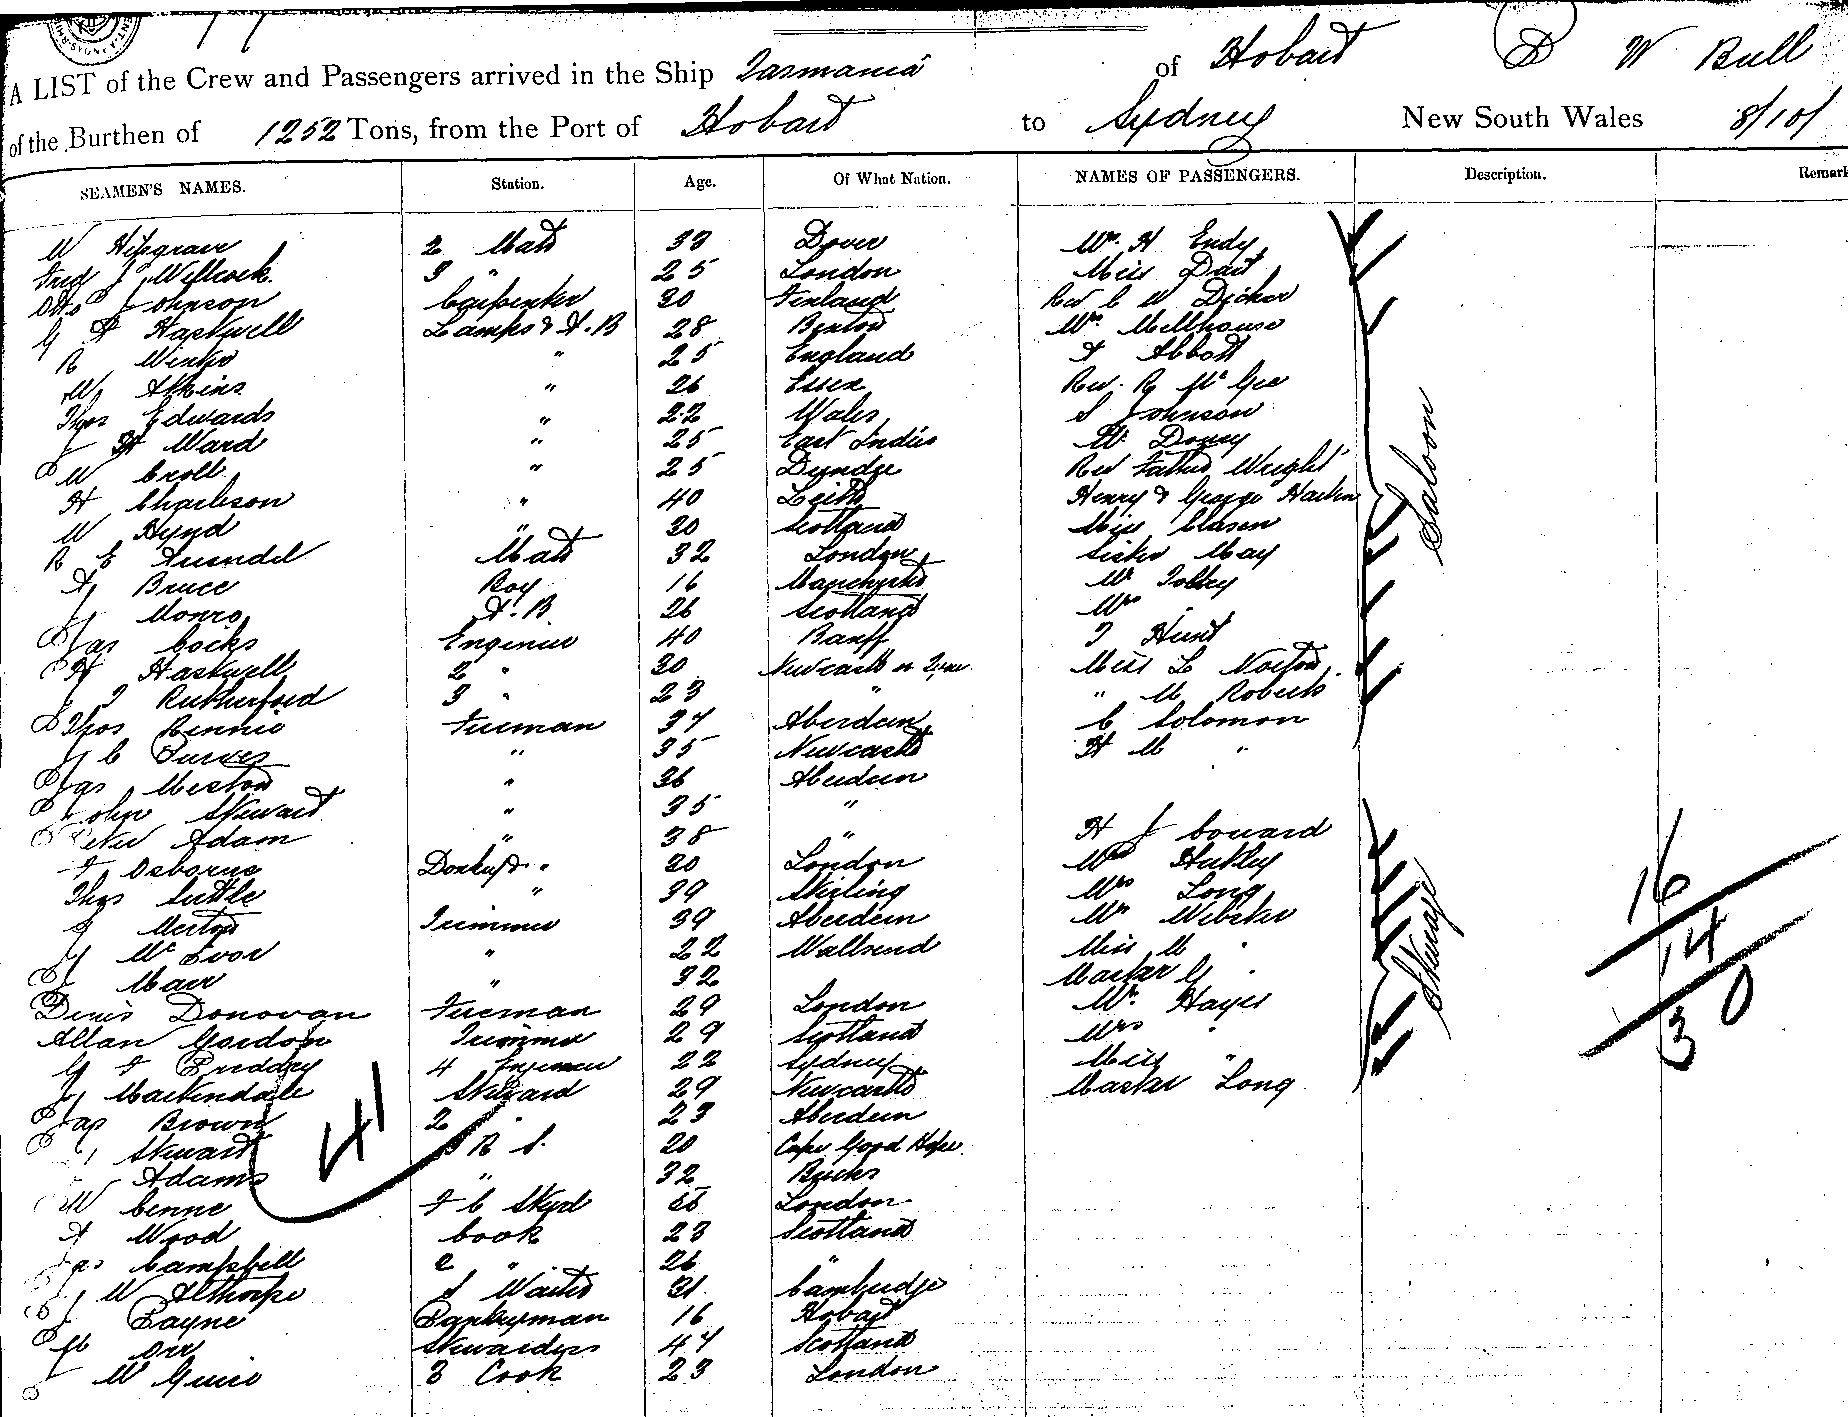 A LIST of the Crew and Passengers arrived in the Ship Tasmania of Hobart W Bull
of the Burthen of 1252 Tons, from the Port of Hobart to Sydney New South Wales 8/10/
SEAMEN'S NAMES. Station. Age. Of What Nation. NAMES OF PASSENGERS. Description. Remark
W Hipgrave 2 Mate 33 Dover Mr. H Endy
Fred J Willcock 3 " 25 London Miss Dait
Otto Johnson Carpenter 30 Finland Rev C W Dicker
G Haskwell Lamps & A.B 28 Brixton Mr. Mellhouse
R Winks " 25 England F Abbott
W Atkins " 26 Essex Rev. R McGee
Thos Edwards " 22 Wales S Johnson
J H Ward " 25 East Indies W Doury
W Croll " 25 Dundee Rev Father Wright
H Charleson " 40 Leith Henry & George Harten
W Hynd " 20 Scotland Miss Clasen
R E Arundel Mate 32 London Sister May
A Bruce Boy 16 Manchester Mr Tolley
J Monro A.B 26 Scotland Mrs
Jas Cocks Engineer 40 Banff T Hunt
H Haskwell 2 " 30 Newcastle on Tyne Miss L Norton
J T Rutherford 3 " 23 " " M Roberts
Thos Rennie Fireman 34 Aberdeen C Solomon
J C Purves " 35 Newcastle H M "
Jas Meston " 36 Aberdeen
John Stewart " 35 "
Peter Adam " 38 " H J Couard
F Osborne Donkey & " 30 London Mrs Huxley
Thos Suttle " 39 Stirling Mrs Long
J Merton Trimmer 39 Aberdeen Mr Webster
J McIvor " 22 Wallsend Miss M "
J Marr " 32 Master G "
Denis Donovan Fireman 29 London Mr. Hayes
Allan Gordon Trimmer 29 Scotland Mrs "
G F Priddey 4 Engineer 22 Sydney Miss "
J Mackendale Steward 29 Newcastle Master Long
Jas Brown 2 " 23 Aberdeen
Stewart B S. 20 Cape Good Hope
Adams " 32 Bucks
W Cenne F C Stwd London
A Wood Cook 23 Scotland
Jas Campbell 2 " 26 "
J W Althorpe S Waiter 31 Cambridge
J Payne Pantryman 16 Hobart
Orr Stewardess 44 Scotland
J W Guice 3 Cook 23 London
Saloon
Steerage
41
16
14
30